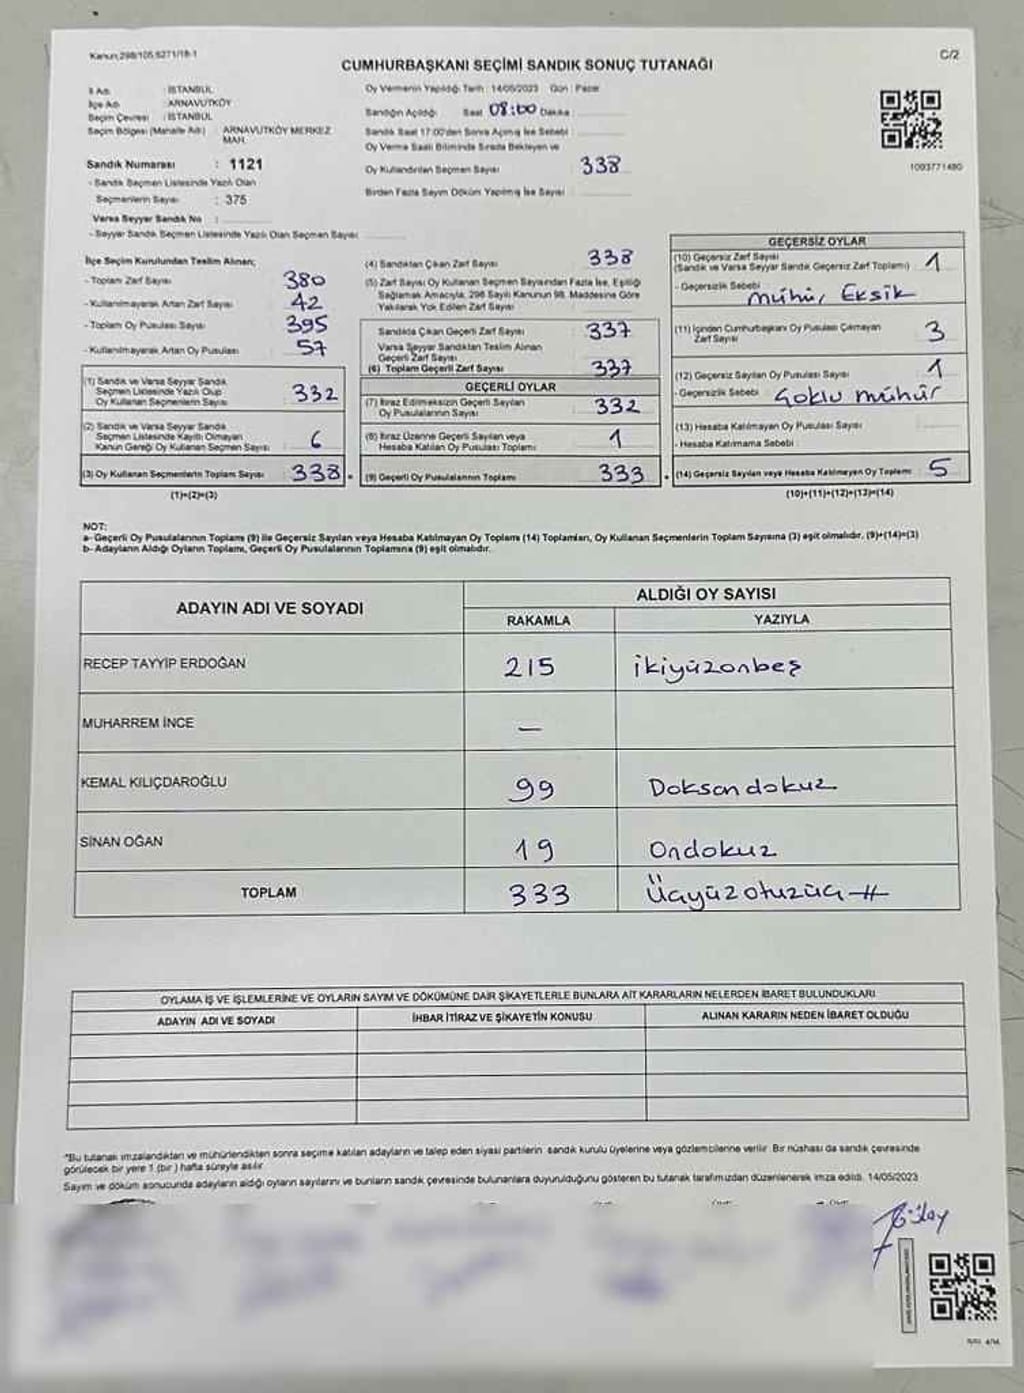 Kanun:298/105,6271/18-1
C/2
CUMHURBAŞKANI SEÇİMİ SANDIK SONUÇ TUTANAĞI
İl Adı : İSTANBUL
İlçe Adı : ARNAVUTKÖY
Seçim Çevresi : İSTANBUL
Seçim Bölgesi (Mahalle Adı) : ARNAVUTKÖY MERKEZ MAH.
Sandık Numarası : 1121
- Sandık Seçmen Listesinde Yazılı Olan
Seçmenlerin Sayısı : 375
Varsa Seyyar Sandık No :
- Seyyar Sandık Seçmen Listesinde Yazılı Olan Seçmen Sayısı
Oy Vermenin Yapıldığı Tarih : 14/05/2023 Gün : Pazar
Sandığın Açıldığı Saat 08:00 Dakika :
Sandık Saat 17:00'den Sonra Açılmış İse Sebebi :
Oy Verme Saati Bitiminde Sırada Bekleyen ve
Oy Kullandırılan Seçmen Sayısı 338
Birden Fazla Sayım Döküm Yapılmış İse Sayısı
1003771480
İlçe Seçim Kurulundan Teslim Alınan;
- Toplam Zarf Sayısı 380
- Kullanılmayarak Artan Zarf Sayısı 42
- Toplam Oy Pusulası Sayısı 395
- Kullanılmayarak Artan Oy Pusulası 57
(1) Sandık ve Varsa Seyyar Sandık
Seçmen Listesinde Yazılı Olup
Oy Kullanan Seçmenlerin Sayısı 332
(2) Sandık ve Varsa Seyyar Sandık
Seçmen Listesinde Kayıtlı Olmayan
Kanun Gereği Oy Kullanan Seçmen Sayısı 6
(3) Oy Kullanan Seçmenlerin Toplam Sayısı 338
(1)+(2)=(3)
(4) Sandıktan Çıkan Zarf Sayısı 338
(5) Zarf Sayısı Oy Kullanan Seçmen Sayısından Fazla İse, Eşitliği
Sağlamak Amacıyla, 298 Sayılı Kanunun 98. Maddesine Göre
Yakılarak Yok Edilen Zarf Sayısı
Sandıkta Çıkan Geçerli Zarf Sayısı 337
Varsa Seyyar Sandıktan Teslim Alınan
Geçerli Zarf Sayısı
(6) Toplam Geçerli Zarf Sayısı 337
GEÇERLİ OYLAR
(7) İtiraz Edilmeksizin Geçerli Sayılan
Oy Pusulalarının Sayısı 332
(8) İtiraz Üzerine Geçerli Sayılan veya
Hesaba Katılan Oy Pusulası Toplamı 1
(9) Geçerli Oy Pusulalarının Toplamı 333
GEÇERSİZ OYLAR
(10) Geçersiz Zarf Sayısı
(Sandık ve Varsa Seyyar Sandık Geçersiz Zarf Toplamı) 1
- Geçersizlik Sebebi Mühür Eksik
(11) İçinden Cumhurbaşkanı Oy Pusulası Çıkmayan
Zarf Sayısı 3
(12) Geçersiz Sayılan Oy Pusulası Sayısı 1
- Geçersizlik Sebebi Çoklu mühür
(13) Hesaba Katılmayan Oy Pusulası Sayısı
- Hesaba Katılmama Sebebi :
(14) Geçersiz Sayılan veya Hesaba Katılmayan Oy Toplamı 5
(10)+(11)+(12)+(13)=(14)
NOT:
a- Geçerli Oy Pusulalarının Toplamı (9) ile Geçersiz Sayılan veya Hesaba Katılmayan Oy Toplamı (14) Toplamları, Oy Kullanan Seçmenlerin Toplam Sayısına (3) eşit olmalıdır. (9)+(14)=(3)
b- Adayların Aldığı Oyların Toplamı, Geçerli Oy Pusulalarının Toplamına (9) eşit olmalıdır.
ADAYIN ADI VE SOYADI
ALDIĞI OY SAYISI
RAKAMLA YAZIYLA
RECEP TAYYİP ERDOĞAN 215 ikiyüzonbeş
MUHARREM İNCE —
KEMAL KILIÇDAROĞLU 99 Doksandokuz
SİNAN OĞAN 19 Ondokuz
TOPLAM 333 Üçyüzotuzüç #
OYLAMA İŞ VE İŞLEMLERİNE VE OYLARIN SAYIM VE DÖKÜMÜNE DAİR ŞİKAYETLERLE BUNLARA AİT KARARLARIN NELERDEN İBARET BULUNDUKLARI
ADAYIN ADI VE SOYADI İHBAR İTİRAZ VE ŞİKAYETİN KONUSU ALINAN KARARIN NEDEN İBARET OLDUĞU
*Bu tutanak imzalandıktan ve mühürlendikten sonra seçime katılan adayların ve talep eden siyasi partilerin sandık kurulu üyelerine veya gözlemcilerine verilir. Bir nüshası da sandık çevresinde
görülecek bir yere 1 (bir) hafta süreyle asılır.
Sayım ve döküm sonucunda adayların aldığı oyların sayılarını ve bunların sandık çevresinde bulunanlara duyurulduğunu gösteren bu tutanak tarafımızdan düzenlenerek imza edildi. 14/05/2023